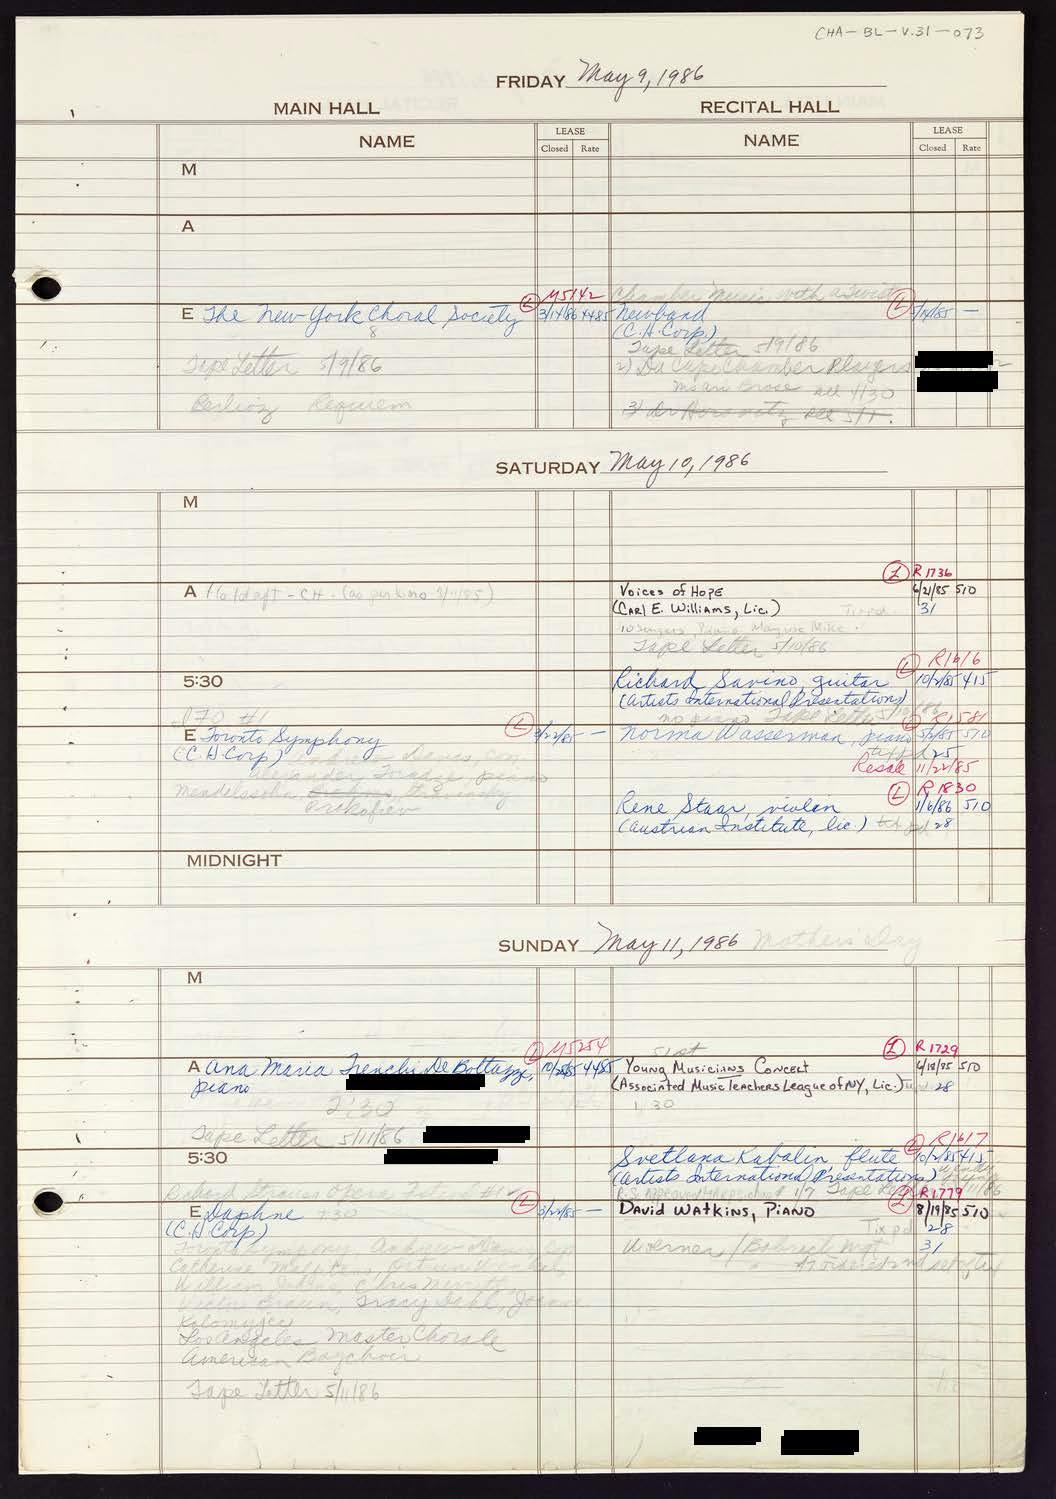 CHA-BL-V.31-073
FRIDAY May 9, 1986
MAIN HALL RECITAL HALL
NAME LEASE Closed Rate NAME LEASE Closed Rate
M
A
Chamber Music with a Twist
Ⓛ M5142
E The New York Choral Society 3/14/86 4485 Newband Ⓛ —
8 (C.H. Corp.)
Tape Letter 5/9/86 Tape Letter 5/9/86
2) Da Capo Chamber Players
all 4/30
Berlioz Requiem
SATURDAY May 10, 1986
M
Ⓛ R1736
A Voices of Hope 6/21/85 510
(Carl E. Williams, Lic.) Tix pd. 31
10 singers, Piano
Tape Letter 5/10/86
Ⓛ R1616
5:30 Richard Savino, guitar 10/2/85 415
(Artists International Presentations)
no piano Tape Letter 5/10/86
Ⓛ R1581
E Toronto Symphony Ⓛ 3/22/85 — Norma Wasserman, piano 510
(C.H. Corp) 25
Andrew Davis, con.
Alexander Toradze, piano Resale 11/22/85
Mendelssohn, Brahms, Stravinsky Ⓛ R1830
Prokofiev
Rene Staar, violin 1/6/86 510
(Austrian Institute, lic.) 28
MIDNIGHT
SUNDAY May 11, 1986 Mother's Day
M
Ⓛ M5254 51st Ⓛ R1729
A Ana Maria Trenchi De Bottazzi, 4485 Young Musicians Concert 6/18/85 510
piano (Associated Music Teachers League of NY, Lic.) 28
2:30 1:30
Tape Letter 5/11/86
Ⓛ R1617
5:30 Svetlana Kabalin, flute 10/2/85 415
(Artists International Presentations)
Richard Strauss Opera #1
Ⓛ R1779
E Daphne 7:30 Ⓛ 3/22/85 — David Watkins, Piano 8/19/85 510
(C.H. Corp) Tix pd. 28
Toronto Symphony Andrew Davis, 31
Werner / Gabriel Mgt
Catherine Malfitano,
William Chris Merritt
Victor Braun, Tracy Dahl, Joanne
Kolomyjec
Los Angeles Master Chorale
American Boychoir
Tape Letter 5/11/86